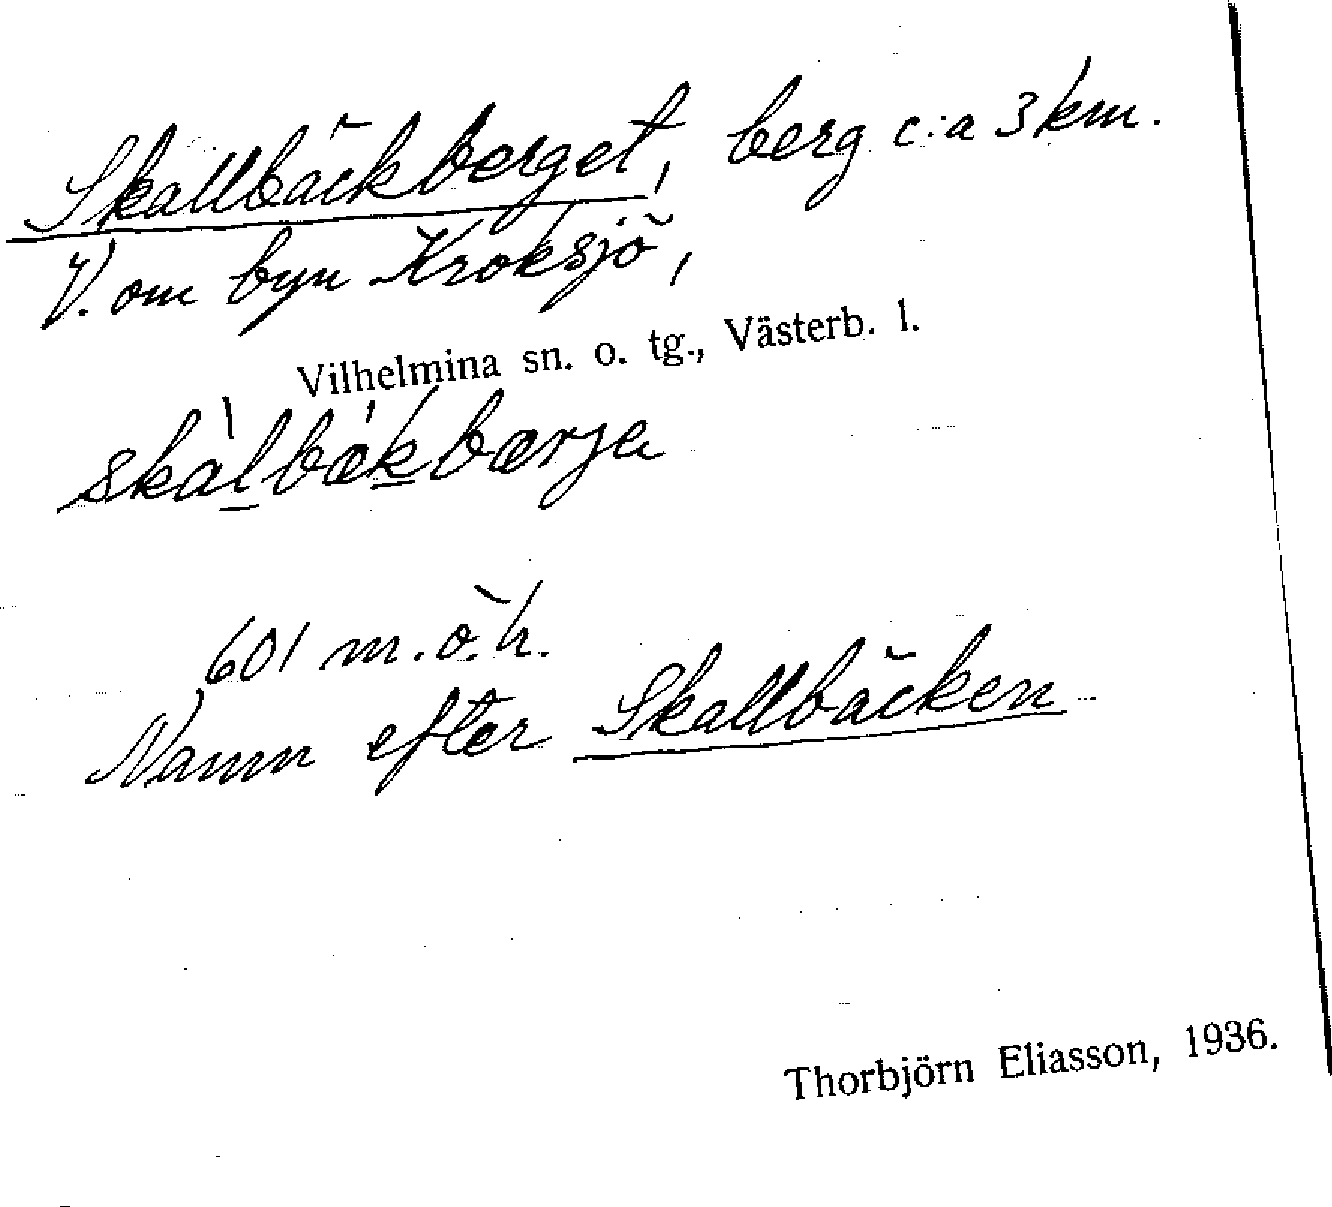 Skallbäckberget, berg c:a 3 km.
V. om byn Kroksjö,
Vilhelmina sn. o. tg., Västerb. l.
skàl̲bǽk̲bærje
601 m.ö.h.
Namn efter Skallbäcken
Thorbjörn Eliasson, 1936.